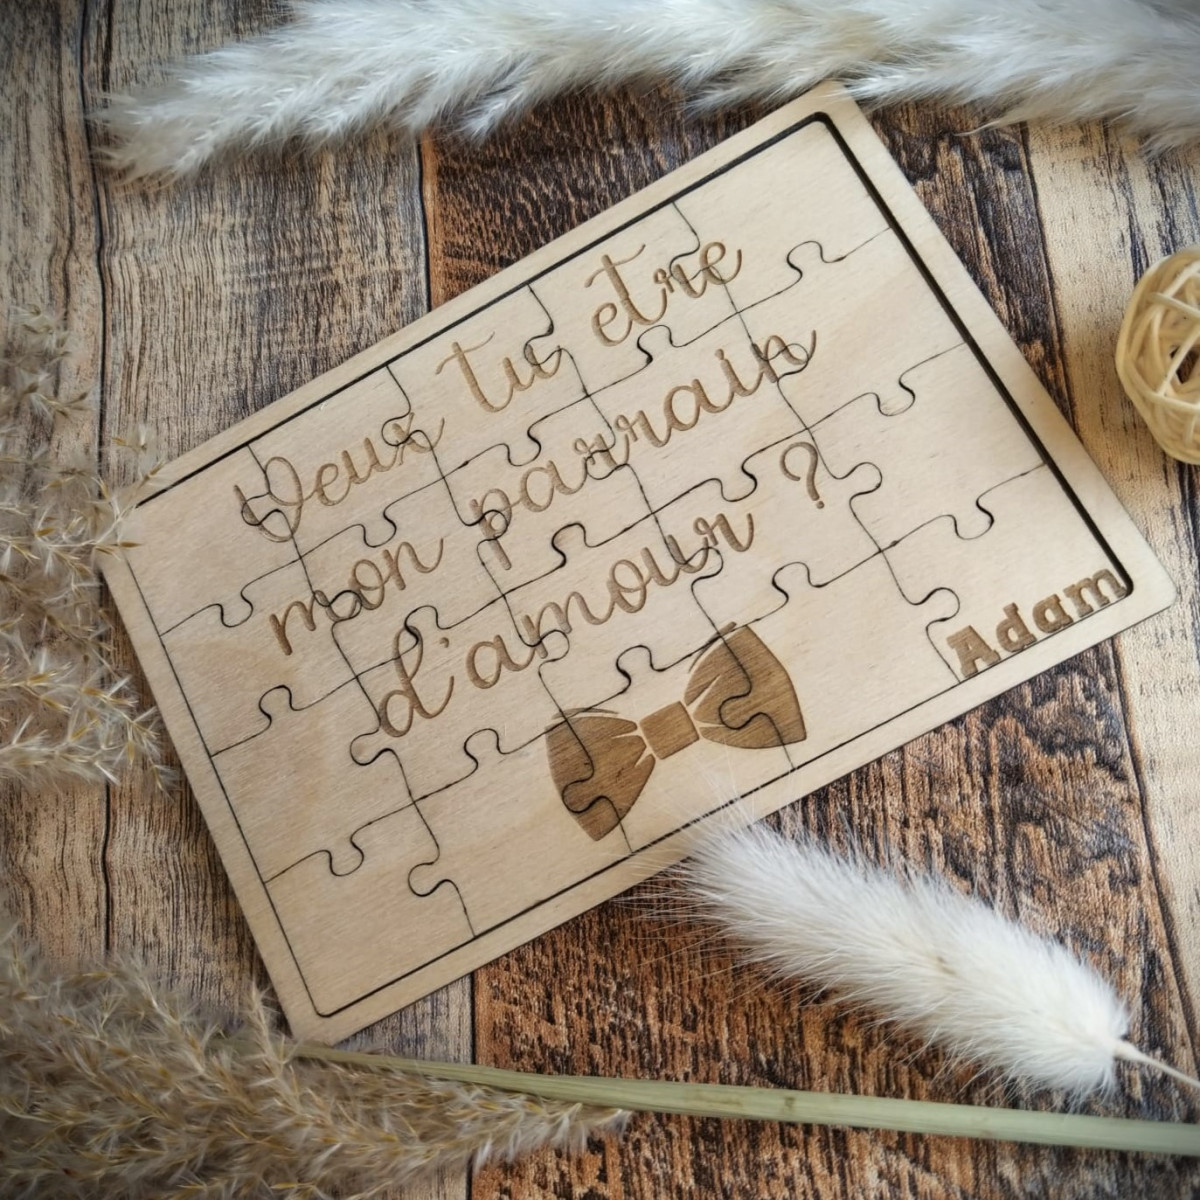 Veux tu etre
mon parrain
d'amour ?
Adam